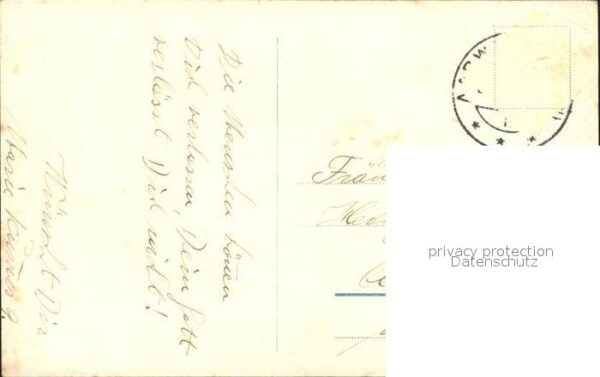 Die Menschen können
Dich verlassen, Dein Gott
verlässt Dich nicht!
Wünscht Dir
Maria
Fräu
privacy protection
Datenschutz